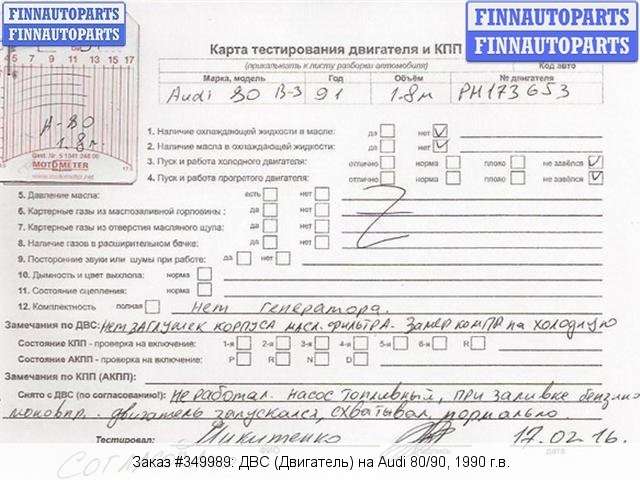 FINNAUTOPARTS
FINNAUTOPARTS
FINNAUTOPARTS
FINNAUTOPARTS
Карта тестирования двигателя и КПП
(прикалывать к листу разборки автомобиля)
Код авто
Марка, модель Год Объём № двигателя
Audi 80 B-3 91 1.8м PM173653
17 15 13 11 9 7 5 4
A-80
1.8м.
MOTOMETER
www.motometer.net
1. Наличие охлаждающей жидкости в масле: да нет
2. Наличие масла в охлаждающей жидкости: да нет
3. Пуск и работа холодного двигателя: отлично норма плохо не завёлся
4. Пуск и работа прогретого двигателя: отлично норма плохо не завёлся
5. Давление масла: есть нет
6. Картерные газы из маслозаливной горловины : да нет
7. Картерные газы из отверстия масляного щупа: да нет
8. Наличие газов в расширительном бачке: да нет
9. Посторонние звуки или шумы при работе: да нет
10. Дымность и цвет выхлопа: норма
11. Состояние сцепления: норма
12. Комплектность полная нет генератора.
Замечания по ДВС: нет заглушек корпуса масл. фильтра. Замер компр на холодную
Состояние КПП - проверка на включение: 1-я 2-я 3-я 4-я 5-я 6-я R
Состояние АКПП - проверка на включение: P R N D
Замечания по КПП (АКПП):
Снято с ДВС (по согласованию!): не работал насос топливный, при заливке бензина
моновпр. двигатель запускался, схватывал нормально.
Тестировал: Никитенко 17.02.16.
ФИО подпись дата
Заказ #349989: ДВС (Двигатель) на Audi 80/90, 1990 г.в.